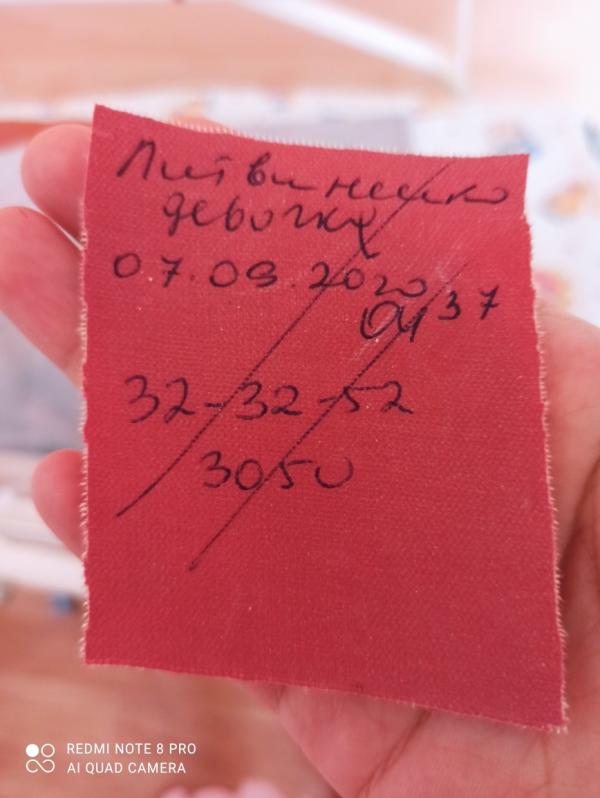 Литвиненко
девочка
07.09.2020
04 37
32-32-52
3050
REDMI NOTE 8 PRO
AI QUAD CAMERA